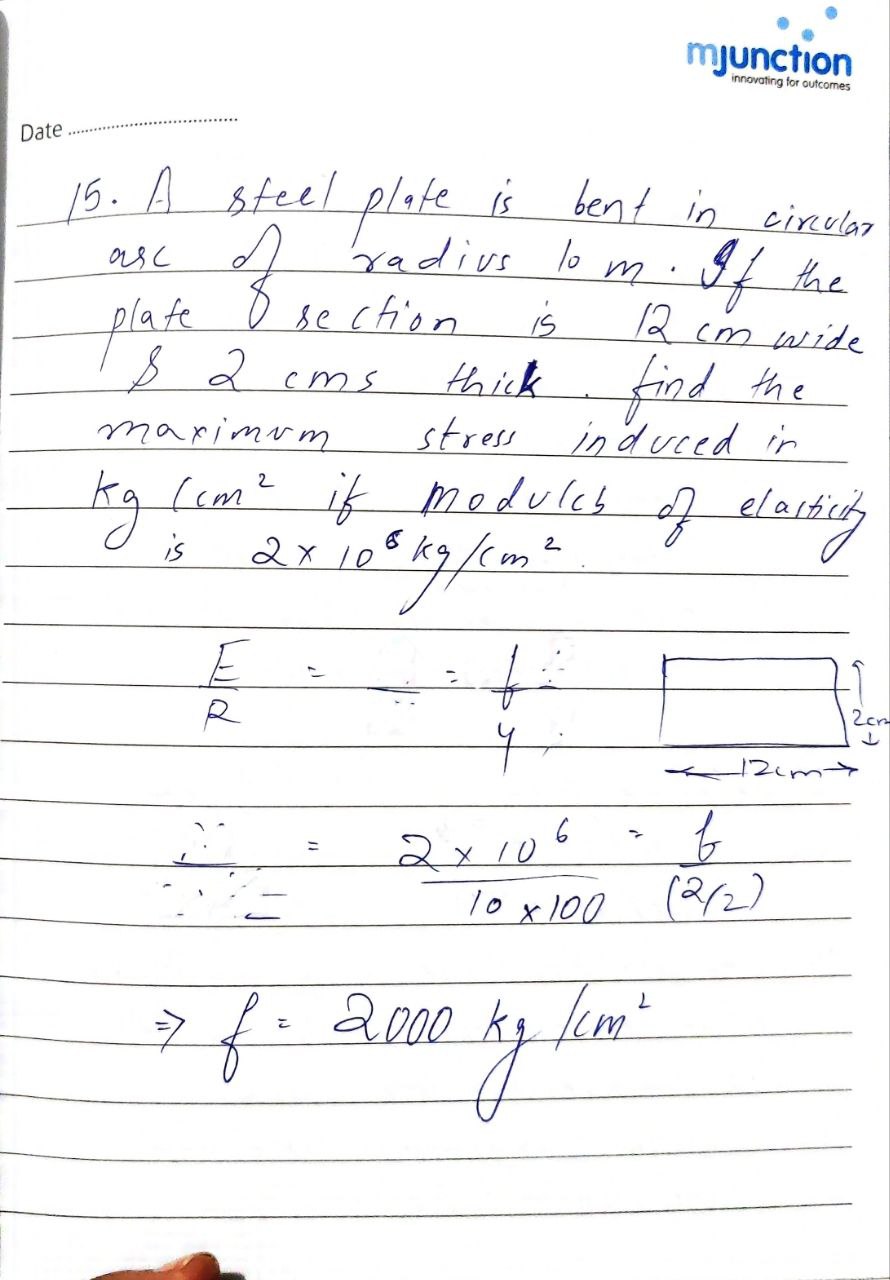 mjunction
innovating for outcomes
Date ..................................
15. A steel plate is bent in circular
arc of radius 10 m. If the
plate section is 12 cm wide
& 2 cms thick. find the
maximum stress induced in
kg/cm² if modulus of elasticity
is 2 x 10⁶ kg/cm².
E/R = = f/y
2cm
12cm
= 2 x 10⁶ / 10 x 100 = f / (2/2)
⇒ f = 2000 kg/cm²